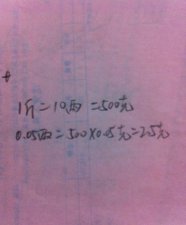 1斤=10两=500克
0.05两=500×0.05克=25克